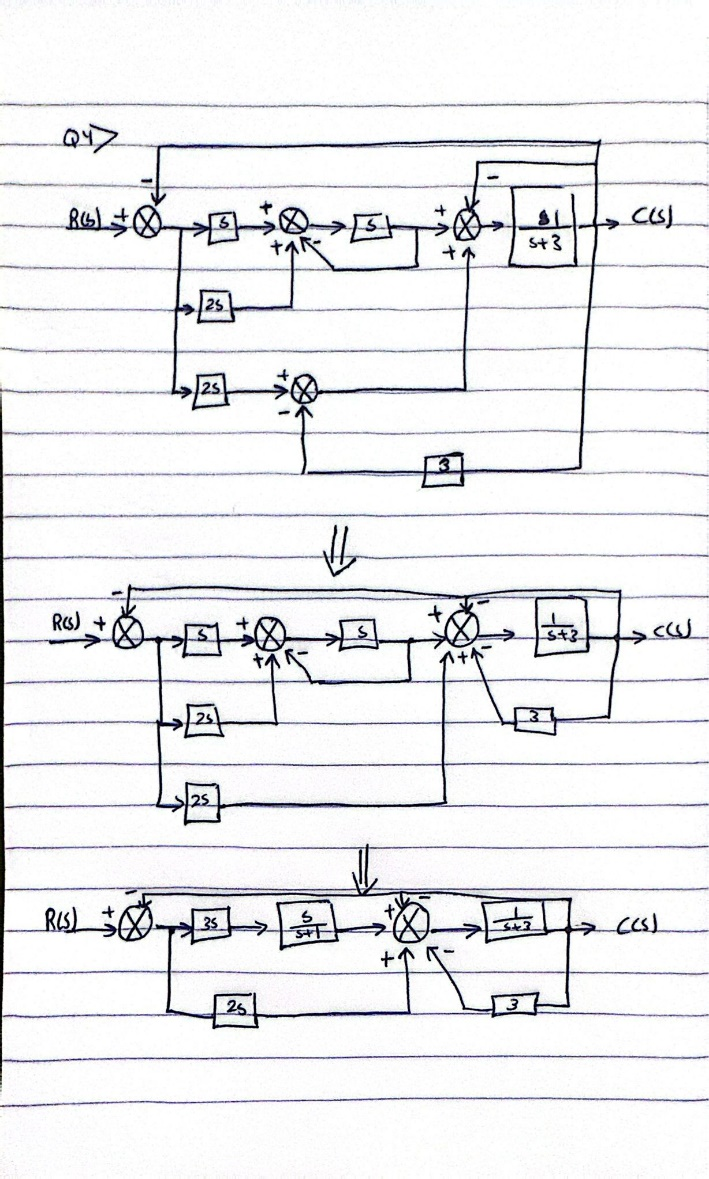 Q4>
-
-
R(s) + S + S + 1/s+3 C(s)
+ - +
2S
2S +
-
3
⇓
- -
R(s) + S + S + 1/s+3 C(s)
+ - + -
2S 3
2S
⇓
- -
R(s) + 3S s/s+1 + 1/s+3 C(s)
+ -
2S 3